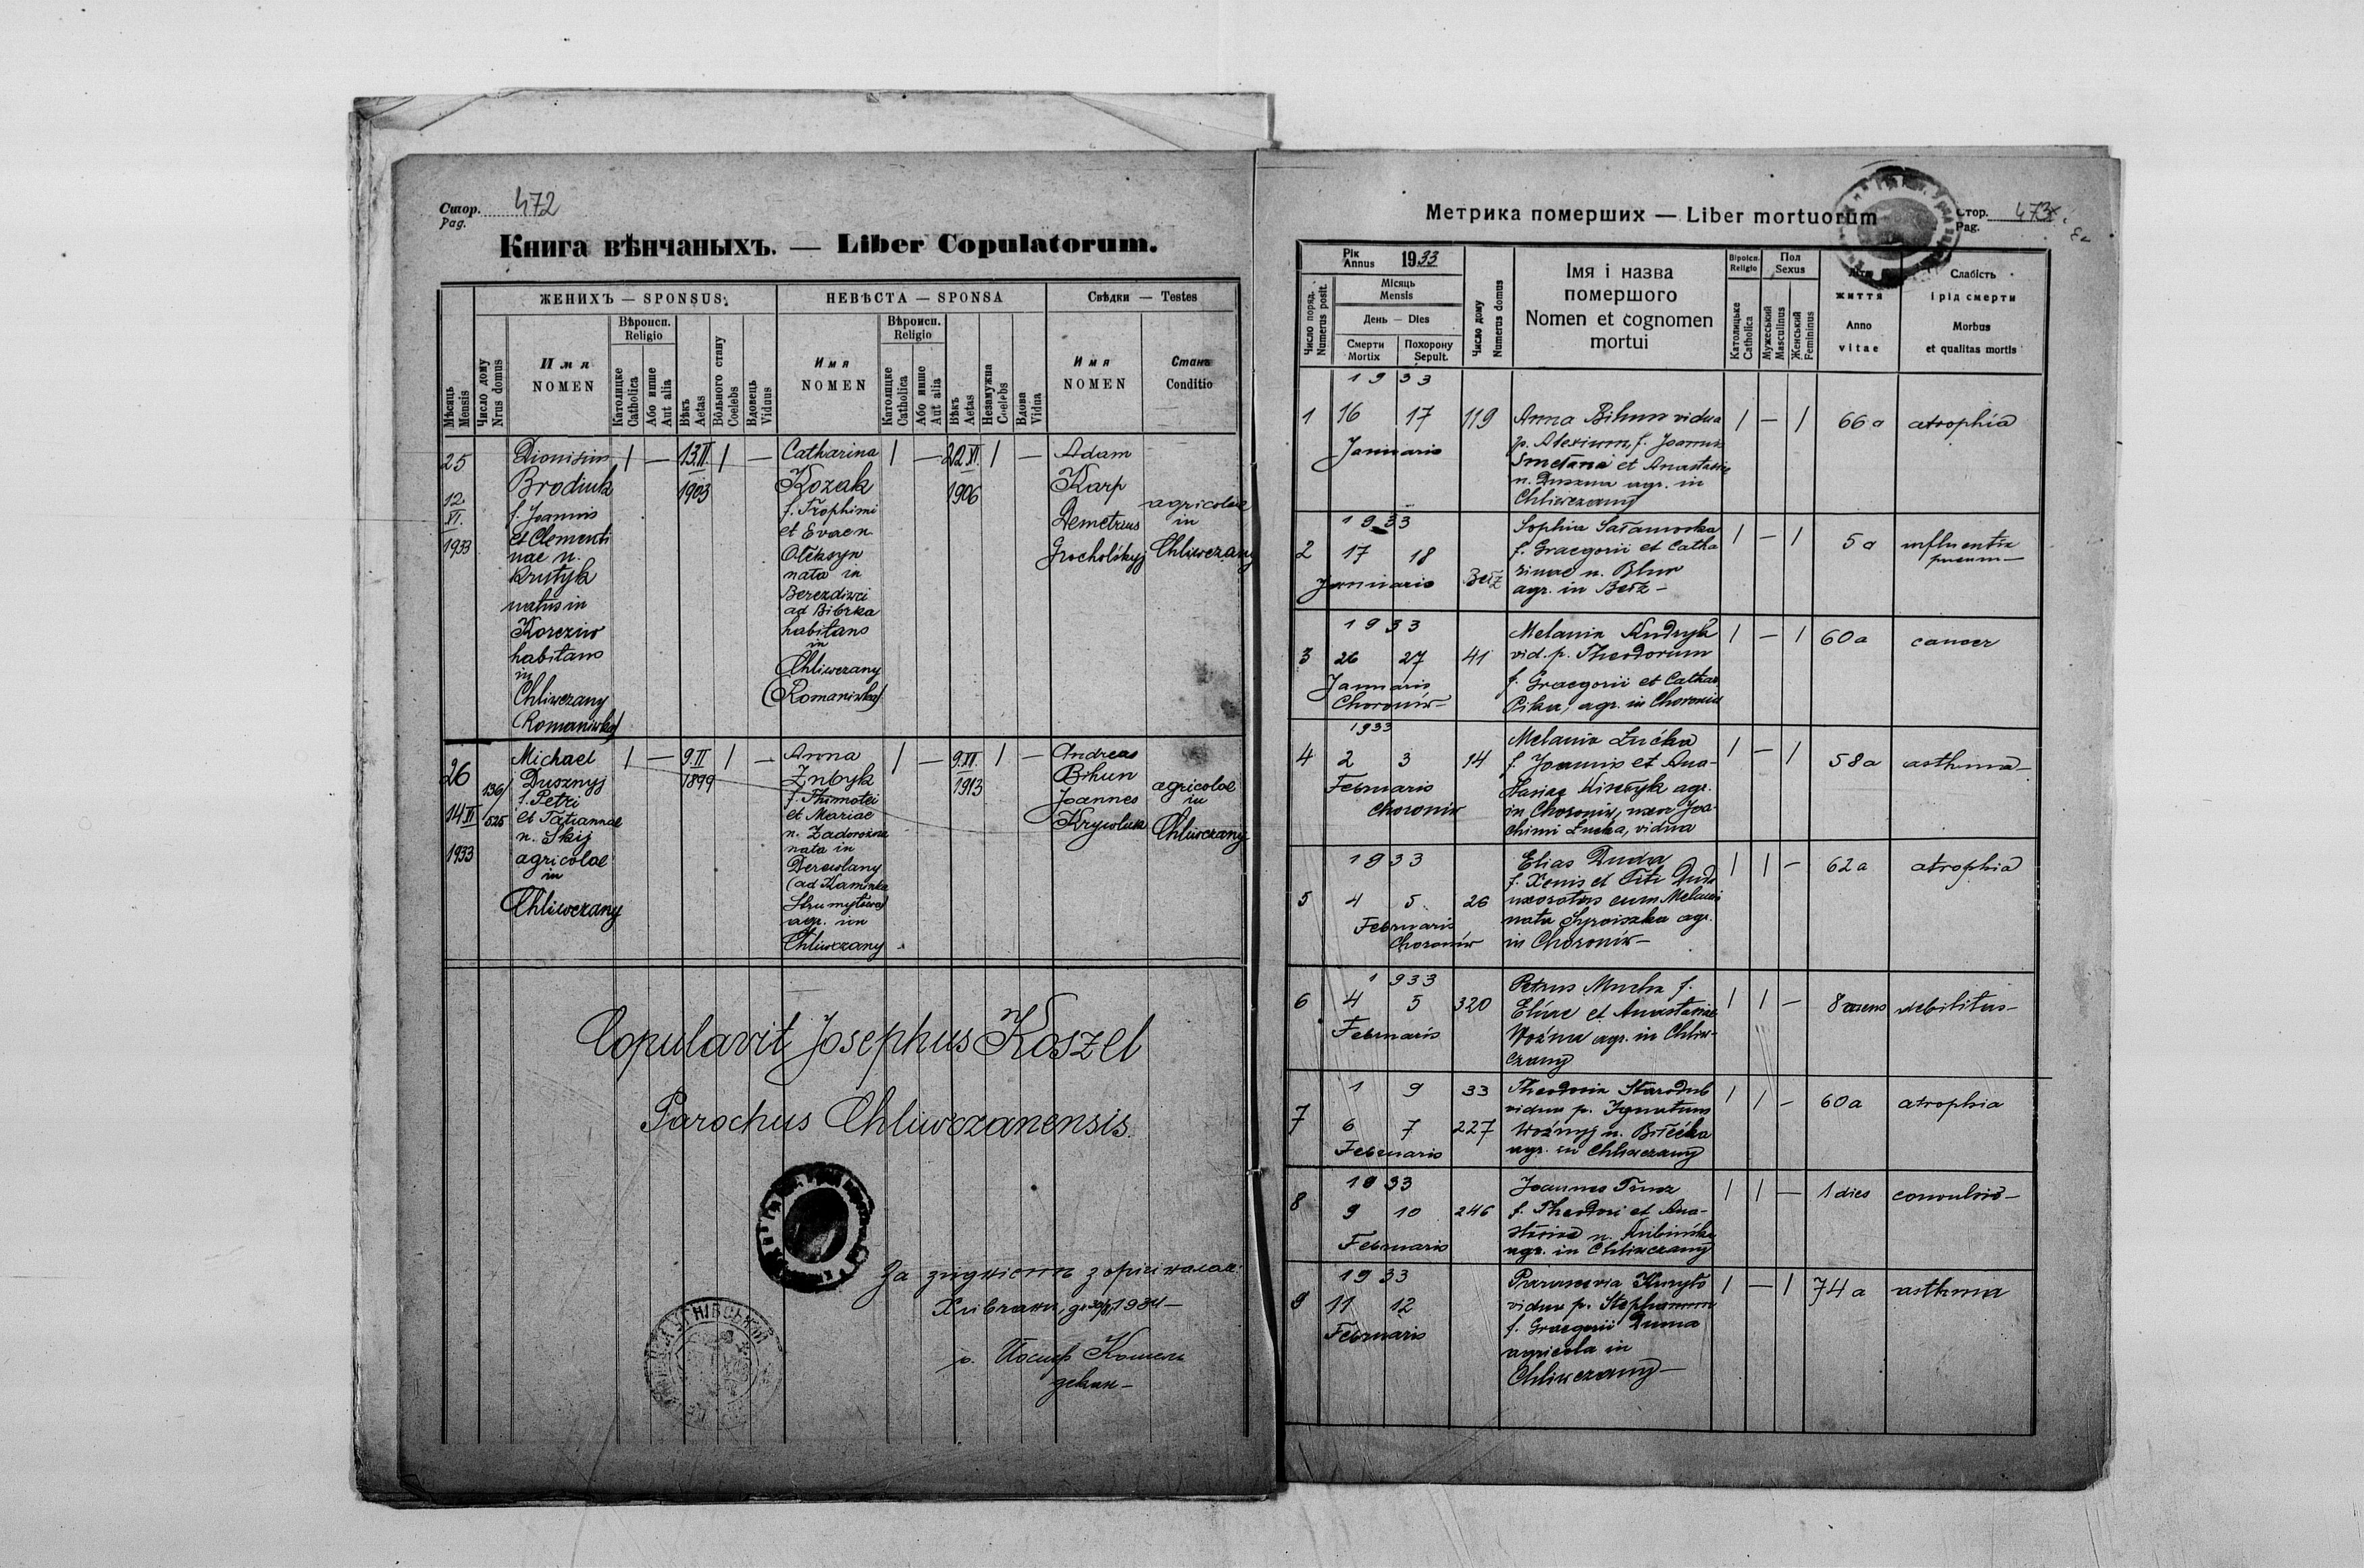 Стор. 472
Pag.
Книга вѣнчаныхъ. — Liber Copulatorum.
Мѣсяць
Mensis
Число дому
Nrus domus
ЖЕНИХЪ — SPONSUS.
Имя
NOMEN
Вѣроисп.
Religio
Католицке
Catholica
Або инше
Aut alia
Вѣкъ
Aetas
Вольного стану
Coelebs
Вдовець
Viduus
НЕВѢСТА — SPONSA
Имя
NOMEN
Вѣроисп.
Religio
Католицке
Catholica
Або инше
Aut alia
Вѣкъ
Aetas
Незамужна
Coelebs
Вдова
Vidua
Свѣдки — Testes
Имя
NOMEN
Станъ
Conditio
25
12
XI.
1933
Dionisius
Brodiuk
f. Joannis
et Clementi
nae n.
Krystyk
natus in
Korcziw
habitans
in
Chliwczany
(Romaniwka)
| — 13.II. | —
1903
Catharina
Kozak
f. Trophimi
et Evae n.
Oleksyn
nata in
Berezdiwci
ad Bibrka
habitans
in
Chliwczany
(Romaniwka)
| — 22 VI. | —
1906
Adam
Karp
Demetrius
Grocholśkyj
agricolae
in
Chliwczany
26
14 XI
1933
136/
525
Michael
Dusznyj
f. Petri
et Tatiannae
n. Skij
agricolae
in
Chliwczany
| — 9.II | —
1899
Anna
Zubyk
f. Thimotei
et Mariae
n. Zadorożna
nata in
Derewlany
(ad Kaminka
Strumyłowa)
agr. in
Chliwczany
| — 9.XI. | —
1913
Andreas
Bihun
Joannes
Krywluk
agricolae
in
Chliwczany
Copulavit Josephus Koszel
Parochus Chliwczanensis.
За згідність з оригіналом:
Хлівчани, 1934 —
о. Йосиф Кошель
декан —
Метрика померших — Liber mortuorum
Стор. 473
Pag.
Число поряд.
Numerus posit.
Рік
Annus 1933
Місяць
Mensis
День — Dies
Смерти
Mortix
Похорону
Sepult.
Число дому
Numerus domus
Імя і назва
помершого
Nomen et cognomen
mortui
Віроісп.
Religio
Католицьке
Catholica
Пол
Sexus
Мужеський
Masculinus
Женський
Femininus
життя
Anno
vitae
Слабість
і рід смерти
Morbus
et qualitas mortis
1933
1 16 17 119
Januaris
Anna Bihun vidua
p. Alexium, f. Joannis
Smetana et Anastasiae
n. Duszna agr. in
Chliwczany
| — | 66 a atrophia
1933
2 17 18
Januaris Bełz
Sophia Sałamorka
f. Graegorii et Catha
rinae n. Bluw
agr. in Bełz —
| — | 5 a influentia
pneum —
1933
3 26 27 41
Januaris
Choroniw —
Melania Kudryk
vid. p. Theodorum
f. Graegorii et Cathar
Pika, agr. in Choroniw
| — | 60 a cancer
1933
4 2 3 14
Februaris
Choroniw
Melania Łućka
f. Joannis et Ana-
stasiae agr.
in Choroniw, uxor Joa
chimi Łucka, vidua
| — | 58 a asthma —
1933
5 4 5 26
Februaris
Choroniw
Elias Duda
f. Xenis et Titi Duda
uxoratus cum Melania
nata agr.
in Choroniw —
| | — 62 a atrophia
1933
6 4 5 320
Februaris
Petrus Mucha f.
Eliae et Anastasiae
Woźna agr. in Chliw-
czany
| | — 8 mens debilitas —
1 9 33
7 6 7 227
Februaris
Theodosia Starodub
vidua p. Ignatium
Woźnyj n. Biłećka
agr. in Chliwczany
| | — 60 a atrophia
1933
8 9 10 246
Februaris
Joannes
f. Theodori et Ana-
stasiae n.
agr. in Chliwczany
| | — 1 dies convulsio —
1933
9 11 12
Februaris
Parascevia Kuryło
vidua p. Stephanum
f. Graegorii Duma
agricola in
Chliwczany —
| — | 74 a asthma